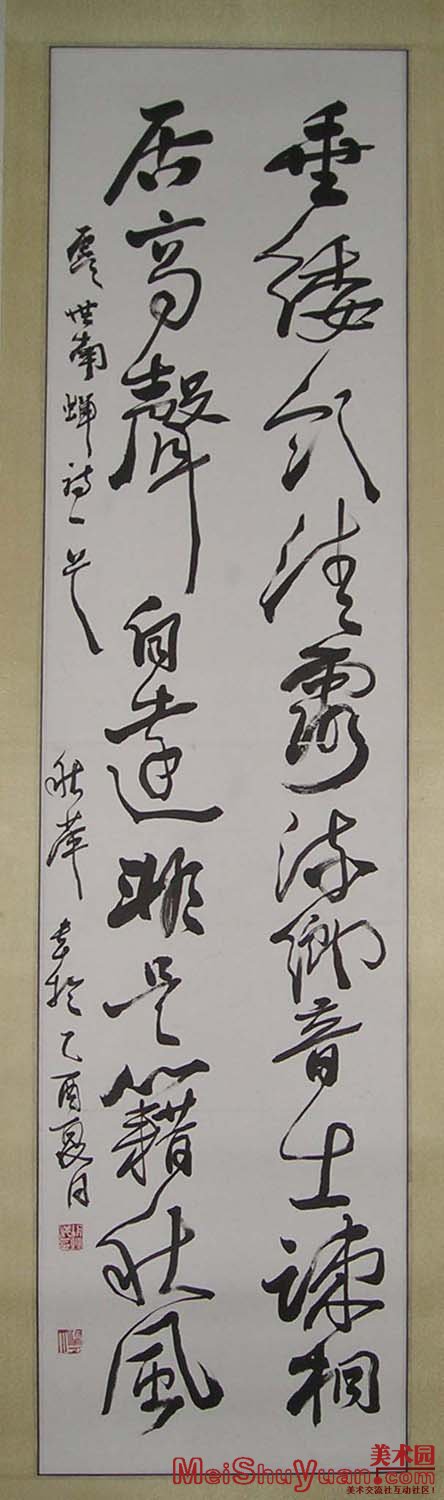 垂緌飲清露流響出疎桐
居高聲自遠非是籍秋風
虞世南蝉詩一首
秋 書於乙酉夏日
美术园
MeiShuYuan.com
美术交流社互动社区！